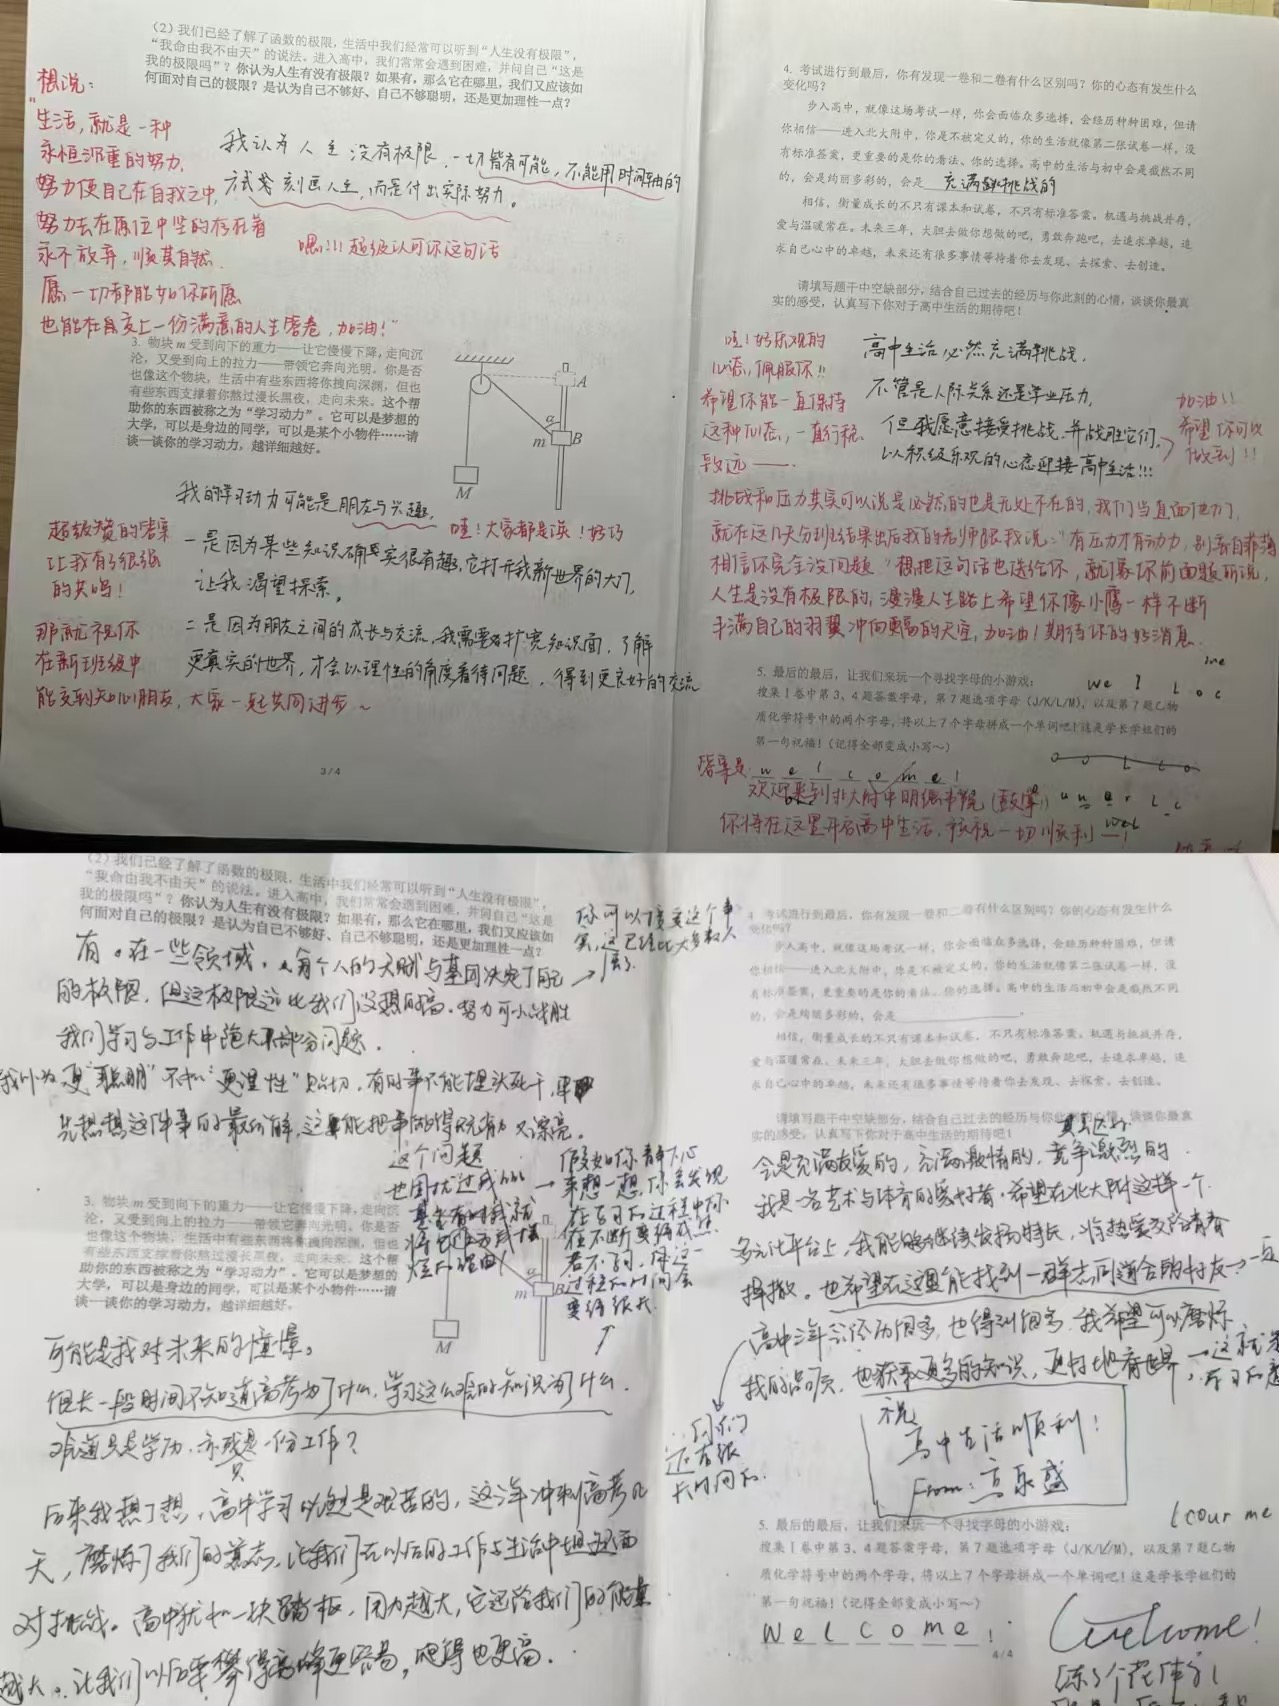 （2）我们已经了解了函数的极限，生活中我们经常可以听到“人生没有极限”，
“我命由我不由天”的说法。进入高中，我们常常会遇到困难，并问自己“这是
我的极限吗”？你认为人生有没有极限？如果有，那么它在哪里，我们又应该如
何面对自己的极限？是认为自己不够好、自己不够聪明，还是更加理性一点？
想说：
“生活，就是一种
永恒沉重的努力，
努力使自己在自我之中，
努力去在原位中坚的存在着
永不放弃，顺其自然
愿一切都能如你所愿
也能在自交上一份满意的人生答卷，加油！”
我认为人生没有极限，一切皆有可能，不能用时间轴的
方式 刻画人生，而是付出实际努力。
嗯!!! 超级认可你这句话
3. 物块 m 受到向下的重力——让它慢慢下降，走向沉
沦，又受到向上的拉力——带领它奔向光明。你是否
也像这个物块，生活中有些东西将你拽向深渊，但也
有些东西支撑着你熬过漫长黑夜，走向未来。这个帮
助你的东西被称之为“学习动力”。它可以是梦想的
大学，可以是身边的同学，可以是某个小物件……请
谈一谈你的学习动力，越详细越好。
A
α
m
B
M
我的学习动力可能是朋友与兴趣，
哇！大家都是诶！好巧
超级赞的答案
让我有了很强
的共鸣！
一是因为某些知识确实很有趣，它打开我新世界的大门，
让我渴望探索。
那就祝你
在新班级中
能交到知心朋友，大家一起共同进步～
二是因为朋友之间的成长与交流，我需要扩宽知识面，了解
更真实的世界，才会以理性的角度看待问题，得到更良好的交流
3 / 4
4. 考试进行到最后，你有发现一卷和二卷有什么区别吗？你的心态有发生什么
变化吗？
步入高中，就像这场考试一样，你会面临众多选择，会经历种种困难，但请
你相信——进入北大附中，你是不被定义的，你的生活就像第二张试卷一样，没
有标准答案，更重要的是你的看法、你的选择。高中的生活与初中会是截然不同
的，会是绚丽多彩的，会是 充满挑战的
相信，衡量成长的不只有课本和试卷，不只有标准答案。机遇与挑战并存，
爱与温暖常在。未来三年，大胆去做你想做的吧，勇敢奔跑吧，去追求卓越，追
求自己心中的卓越，未来还有很多事情等待着你去发现、去探索、去创造。
请填写题干中空缺部分，结合自己过去的经历与你此刻的心情，谈谈你最真
实的感受，认真写下你对于高中生活的期待吧！
哇！好乐观的
心态，佩服你!!
希望你能一直保持
这种心态，一直行稳
致远——
高中生活必然充满挑战，
不管是人际关系还是学业压力，
但我愿意接受挑战，并战胜它们，
以积极乐观的心态迎接高中生活!!!
加油!!
希望你可以
做到!!
挑战和压力其实可以说是必然的也是无处不在的，我们当直面他们，
就在这几天分班结果出后我的老师跟我说：“有压力才有动力，别
相信你完全没问题”想把这句话也送给你，就像你前面题所说，
人生是没有极限的，漫漫人生路上希望你像小鹰一样不断
丰满自己的羽翼冲向更高的天空，加油！期待你的好消息
5. 最后的最后，让我们来玩一个寻找字母的小游戏：
搜来Ⅰ卷中第 3、4 题答案字母，第 7 题选项字母（J/K/L/M），以及第 7 题乙物
质化学符号中的两个字母，将以上 7 个字母拼成一个单词吧！这是学长学姐们的
第一句祝福！（记得全部变成小写～）
答案是 w e l c o m e !
欢迎来到北大附中明德书院
你将在这里开启高中生活，祝一切顺利
（2）我们已经了解了函数的极限，生活中我们经常可以听到“人生没有极限”，
“我命由我不由天”的说法。进入高中，我们常常会遇到困难，并问自己“这是
我的极限吗”？你认为人生有没有极限？如果有，那么它在哪里，我们又应该如
何面对自己的极限？是认为自己不够好、自己不够聪明，还是更加理性一点？
你可以接受这个事
实，这已经比大多数人
厉害了
有。在一些领域，每个人的天赋与基因决定了自己
的极限，但这极限远比我们设想的高。努力可以战胜
我们学习与工作中绝大部分问题。
我认为更“聪明”不如“更理性”贴切，有时事不能埋头死干，
先想想这件事的最优解，这样能把事做得既有力又漂亮。
这个问题
也困扰过我
假如你静下心
来想一想，你会发现
3. 物块 m 受到向下的重力——让它慢慢下降，走向沉
沦，又受到向上的拉力——带领它奔向光明。你是否
也像这个物块，生活中有些东西将你拽向深渊，但也
有些东西支撑着你熬过漫长黑夜，走向未来。这个帮
助你的东西被称之为“学习动力”。它可以是梦想的
大学，可以是身边的同学，可以是某个小物件……请
谈一谈你的学习动力，越详细越好。
m
M
可能是我对未来的憧憬。
但长一段时间不知道高考为了什么，学习这么难的知识为了什么。
难道只是学历，亦或只是一份工作？
后来我想了想，高中学习 是艰苦的，这三年冲刺高考几
天，磨炼了我们的意志，让我们在以后的工作与生活中坦然面
对挑战。高中犹如一块踏板，用力越大，它还给我们的能量
越大。让我们以后攀得高峰更容易，爬得也更高。
4. 考试进行到最后，你有发现一卷和二卷有什么区别吗？你的心态有发生什么
变化吗？
步入高中，就像这场考试一样，你会面临众多选择，会经历种种困难，但请
你相信——进入北大附中，你是不被定义的，你的生活就像第二张试卷一样，没
有标准答案，更重要的是你的看法、您的选择。高中的生活与初中会是截然不同
的，会是绚丽多彩的，会是
相信，衡量成长的不只有课本和试卷，不只有标准答案。机遇与挑战并存，
爱与温暖常在。未来三年，大胆去做你想做的吧，勇敢奔跑吧，去追求卓越，追
求自己心中的卓越，未来还有很多事情等待着你去发现、去探索、去创造。
请填写题干中空缺部分，结合自己过去的经历与你此刻的心情，谈谈你最真
实的感受，认真写下你对于高中生活的期待吧！
会是充满友爱的，充满激情的，竞争激烈的
我是一名艺术与体育的爱好者，希望在北大附这样一个
多元化平台上，我能够继续发扬特长，将热爱及
挥撒。也希望在这里能找到一群志同道合的好友
高中三年会经历很多，也得到很多，我希望可以磨炼
我的品质，也获取更多的知识，更好地看世界
你们
还有很
长时间
祝
高中生活顺利！
From：
5. 最后的最后，让我们来玩一个寻找字母的小游戏：
搜来Ⅰ卷中第 3、4 题答案字母，第 7 题选项字母（J/K/L/M），以及第 7 题乙物
质化学符号中的两个字母，将以上 7 个字母拼成一个单词吧！这是学长学姐们的
第一句祝福！（记得全部变成小写～）
W e l c o m e !
4 / 4
Welcome!